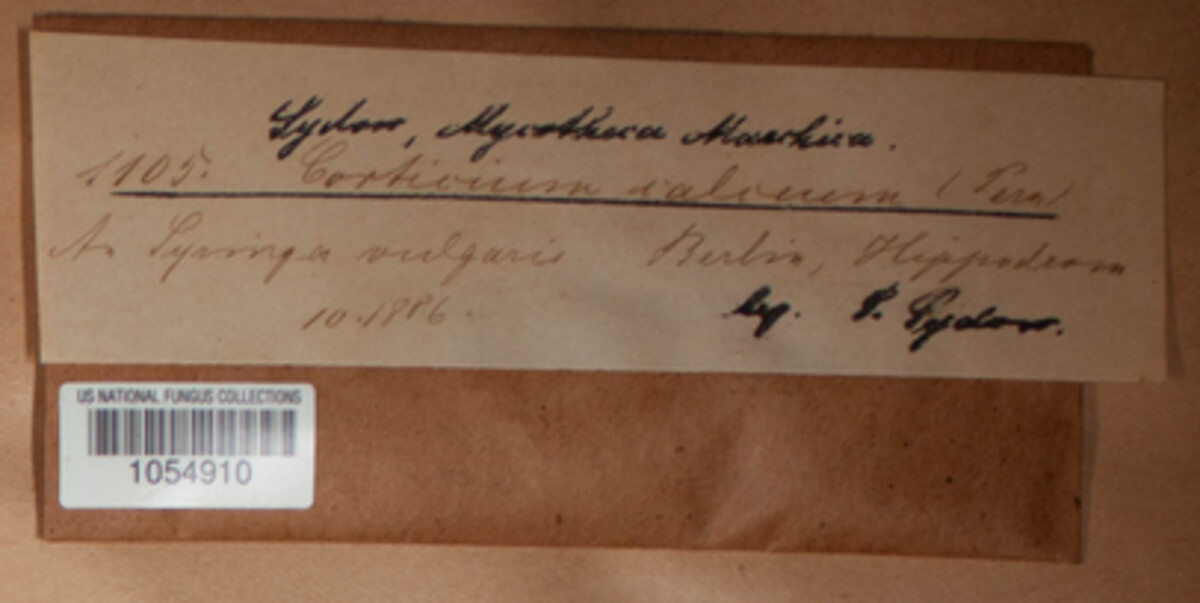 Sydow, Mycotheca Marchica.
1105. Corticium calceum (Pers)
An Syringa vulgaris Berlin, Hippodrom
10.1886.
leg. P. Sydow.
US NATIONAL FUNGUS COLLECTIONS
1054910